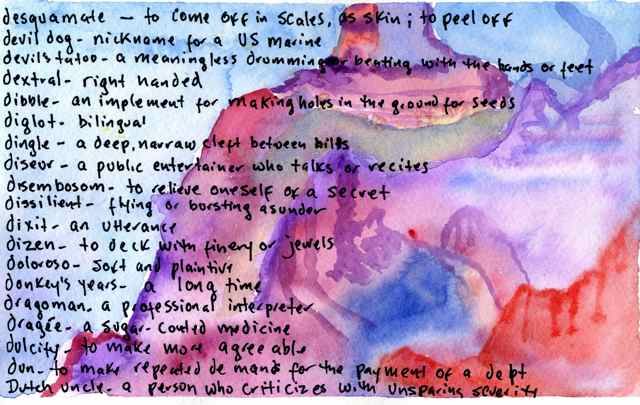 desquamate - to come off in scales, as skin; to peel off
devil dog - nickname for a US marine
devils tatoo - a meaningless drumming or beating with the hands or feet
dextral - right handed
dibble - an implement for making holes in the ground for seeds
diglot - bilingual
dingle - a deep, narraw cleft between hills
diseur - a public entertainer who talks or recites
disembosom - to relieve oneself of a secret
dissilient - flying or bursting asunder
dixit - an utterance
dizen - to deck with finery or jewels
doloroso - soft and plaintive
donkey's years - a long time
dragoman - a professional interpreter
Dragée - a sugar-coated medicine
dulcity - to make more agreeable
dun - to make repeated demands for the payment of a debt
Dutch uncle - a person who criticizes with unsparing severity